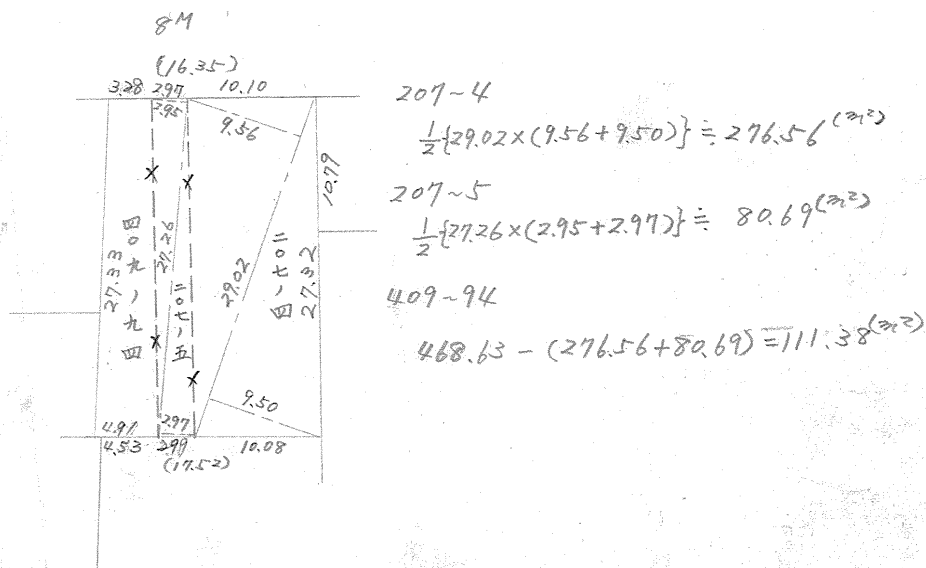 8M
(16.35)
3.28 2.97 10.10
2.95
9.56
10.79
27.33
四〇九〜九四
27.26
二〇七〜五
29.02
二〇七〜四
27.32
9.50
4.91 2.97
4.53 2.99 10.08
(17.52)
207~4
1/2{29.02×(9.56+9.50)}≒276.56(m²)
207~5
1/2{27.26×(2.95+2.97)}≒ 80.69(m²)
409~94
468.63-(276.56+80.69)=111.38(m²)